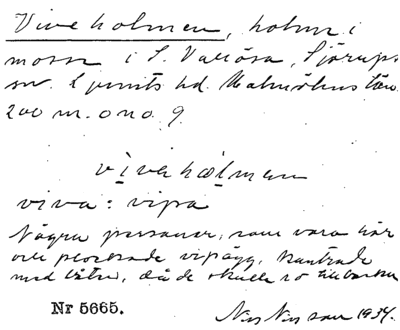 Viveholmen, holm i
mosse i S. Vallösa, Sjörups
sn. Ljunits hd. Malmöhus län.
200 m. ono 9.
vivehɶlmen
viva: vipa
Några personer, som vara här
och plockade vipägg, kantrade
med båten, då de skulle ro tillbaka
Nr 5665.
Nils Nilsson 1934.